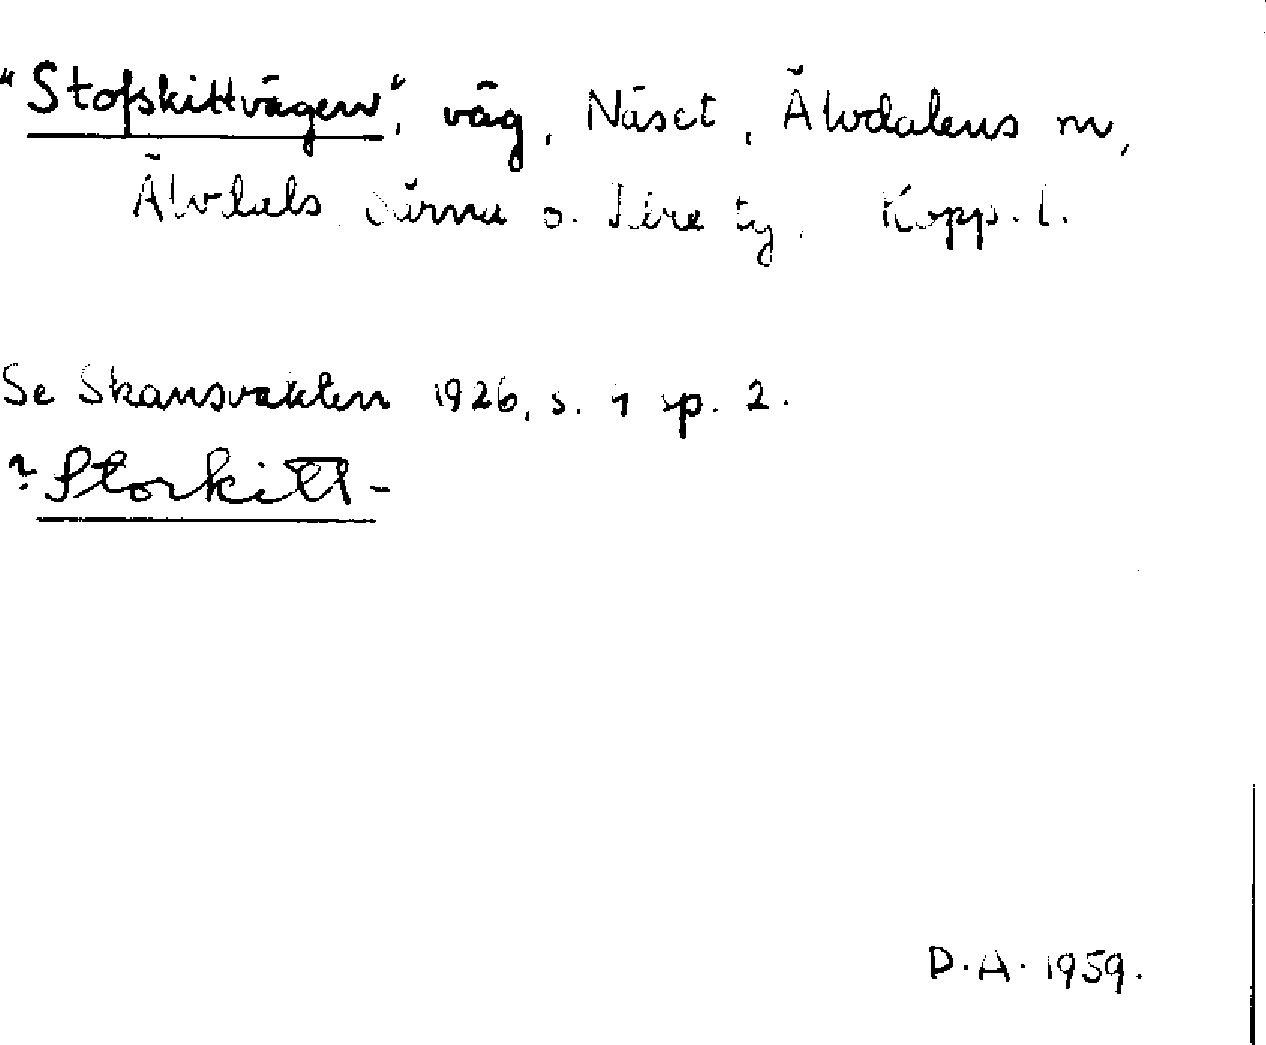 "Stofskittvägen", väg, Näset, Älvdalens m,
Älvdals Särna o. Idre tg. Kopp. l.
Se Skansvakten 1926, s. 1 sp. 2.
? Storkitt-
D.A. 1959.